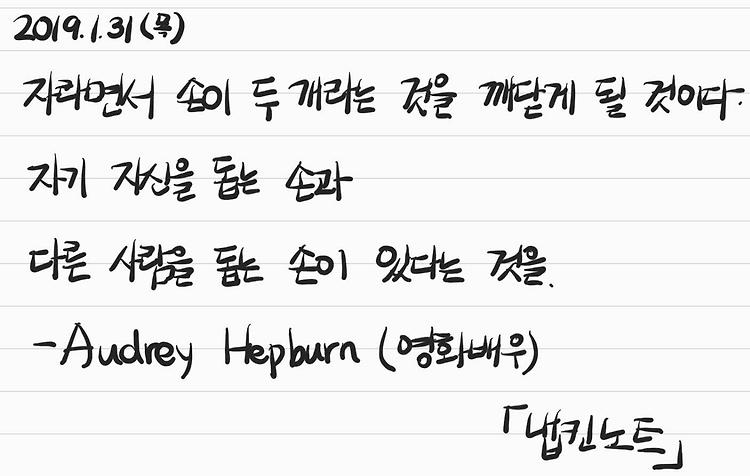 2019.1.31(목)
자라면서 손이 두 개라는 것을 깨닫게 될 것이다.
자기 자신을 돕는 손과
다른 사람을 돕는 손이 있다는 것을.
-Audrey Hepburn (영화배우)
「냅킨노트」